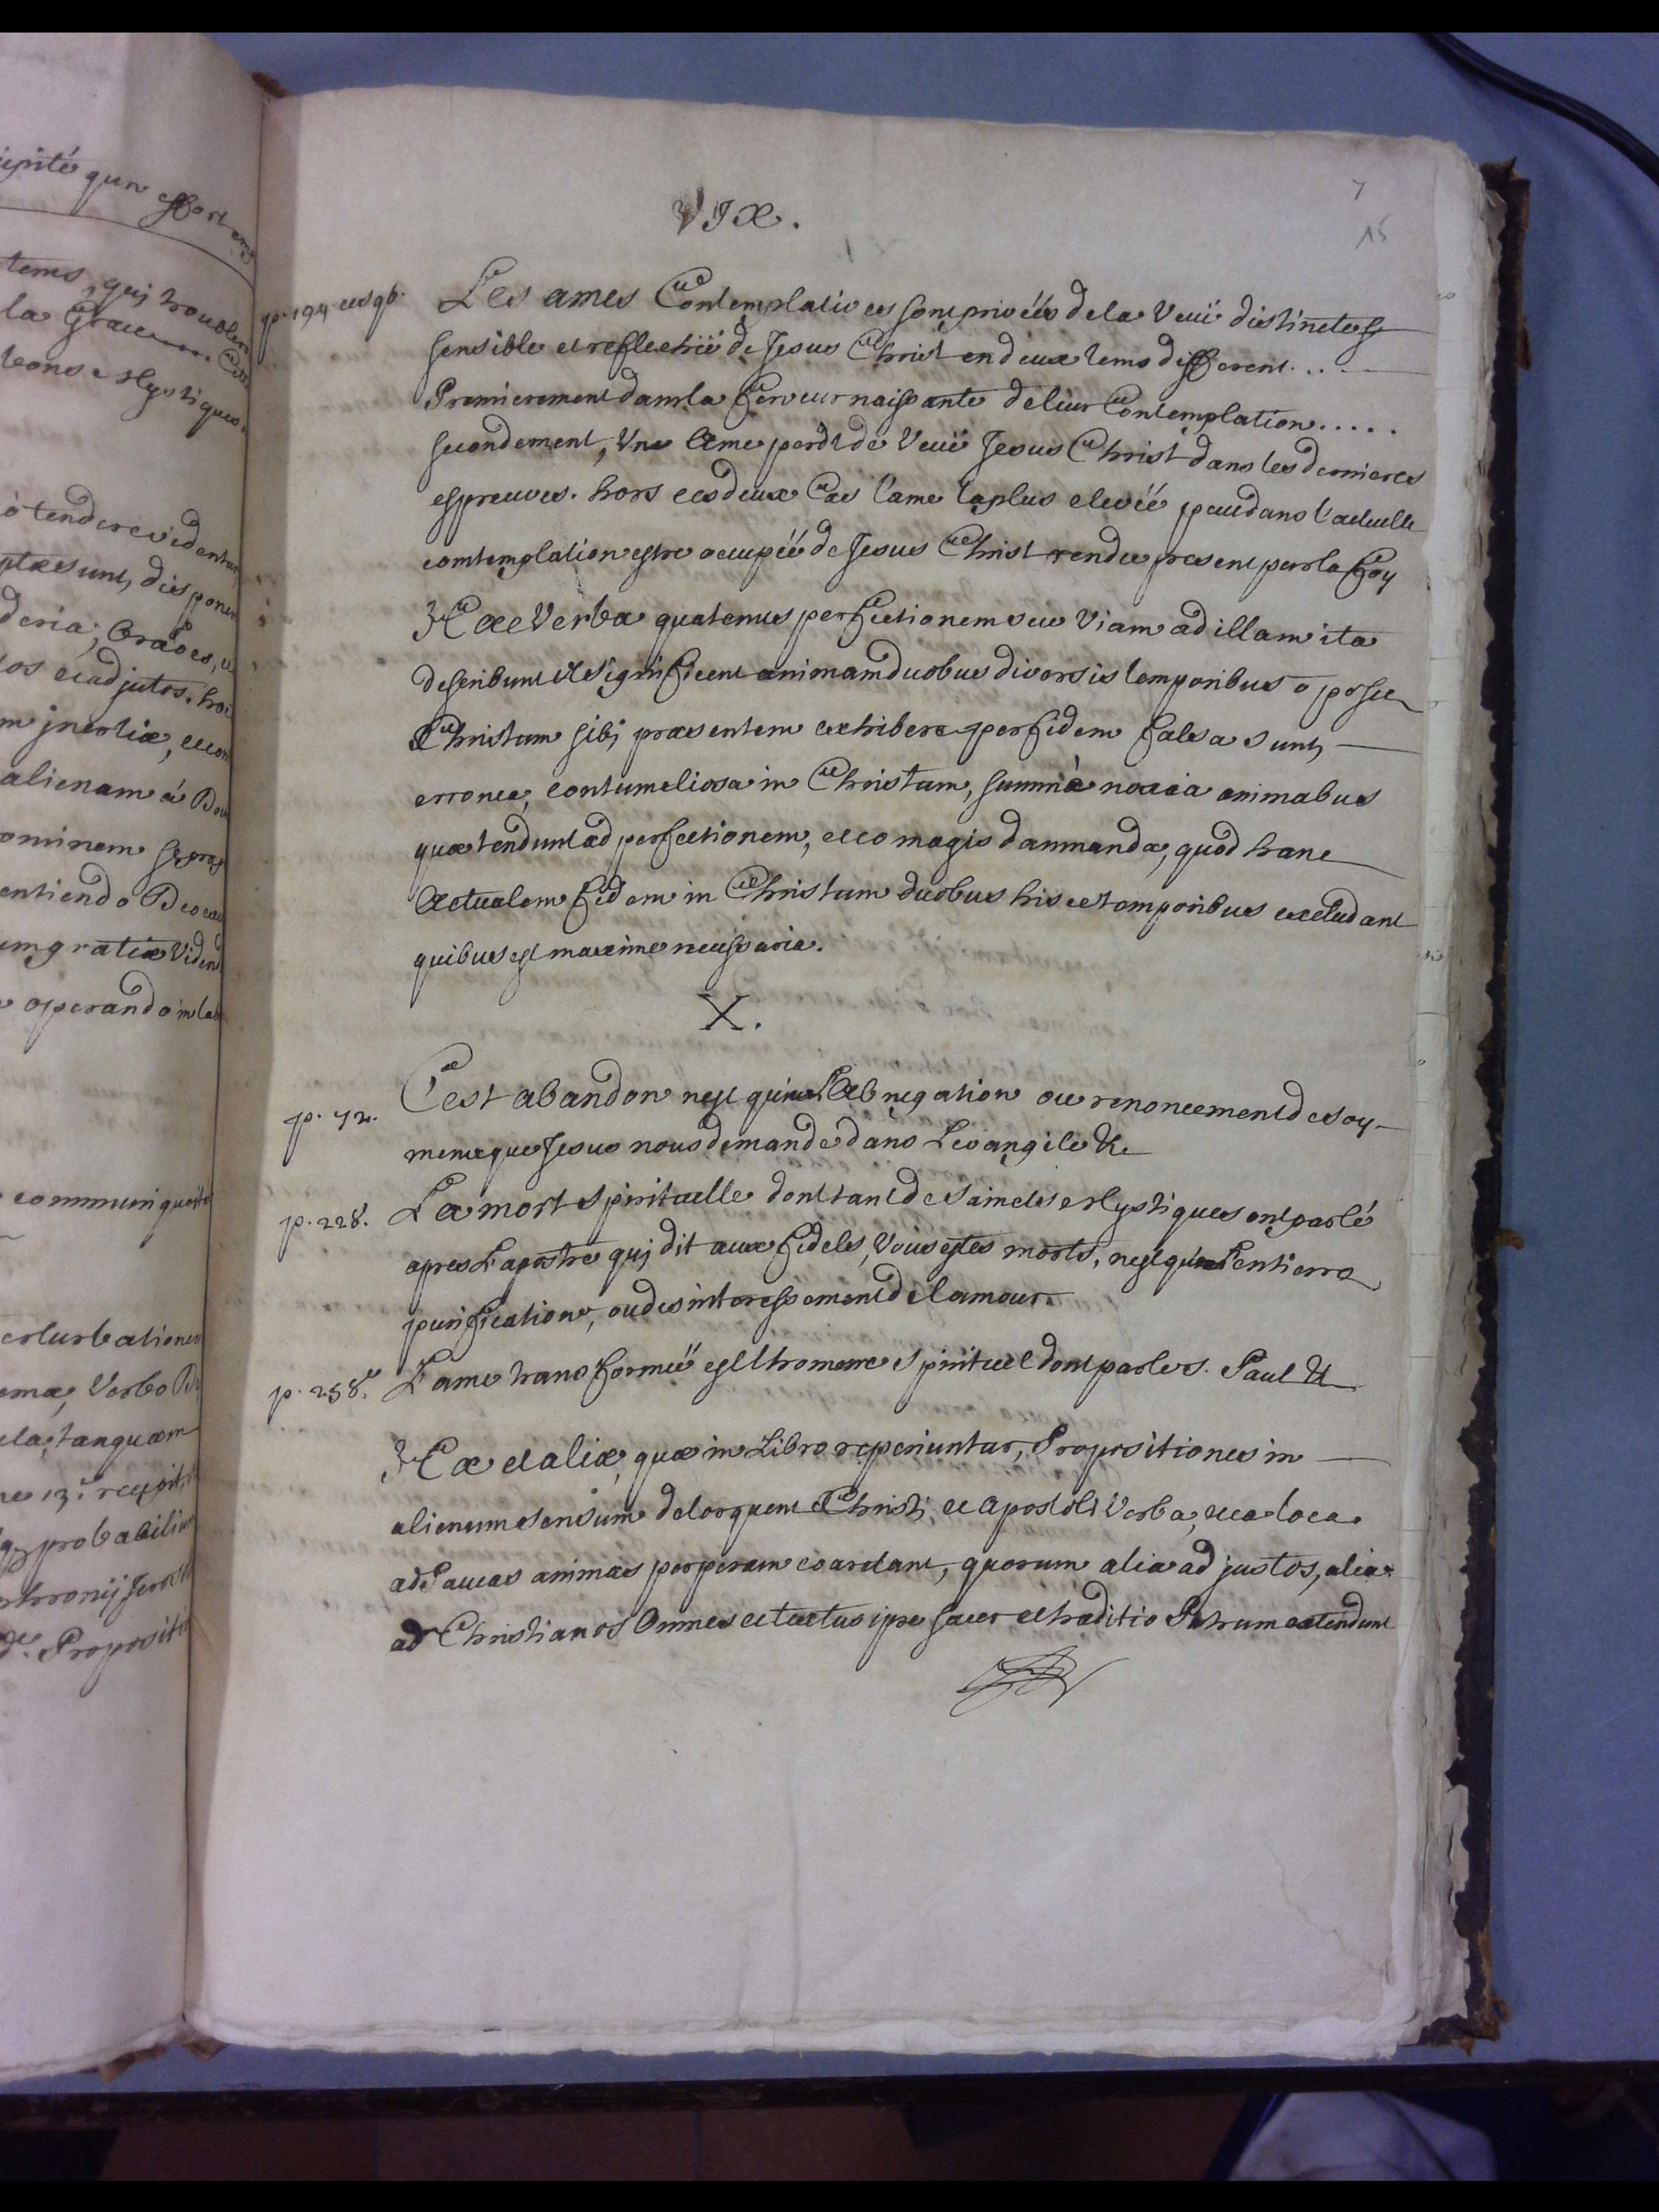 ipité qu'un effort
tems, qui trouble
la Grace....
bons Mystiques.
o tendere videntur
ptæ sunt, disponen
deria, Graões, et
los et adjutos. hoc
m inertiæ, et con
alienam à Deo
ominem se præ
entiendo Deo
um gratiæ Vident
operando in
communiquée
erturbationem
emæ, Verbo
ela, tanquam
ne 13.ᵉ rejoit,
probabilius
phronij
de Propositi
7
15
VIX.
p. 194. et 196. Les ames Contemplatives sont privéés de la Veuë distincte
sensible et reflechië de Jesus Christ en deux tems different...
Premierement dans la ferveur naissante de leur Contemplation.....
secondement, Une Ame perdt de Veuë Jesus Christ dans les dernieres
espreuves. hors ces deux Cas l'ame la plus elevéé peut dans l'actuelle
comtemplation estre occupéé de Jesus Christ rendu present par la foy
Hæc Verba quatenus perfectionem seu Viam ad illam ita
describunt ut significent animam duobus diversis temporibus o posse
Christum sibj præsentem exhibere per fidem falsa sunt,
erronea, contumeliosa in Christum, summè noxia animabus
quæ tendunt ad perfectionem, et eo magis damnanda, quod hanc
Actualem fidem in Christum duobus hisce temporibus excludant
quibus est maxime necessaria.
X.
p. 72. C'est abandon n'est que l'Abnegation ou renoncement de soy-
meme que Jesus nous demande dans L'evangile &c
p. 228. La mort spirituelle dont tant de Saincts Mystiques ont parlé
apres L'apostre quj dit aux fideles, Vous estes morts, n'est que L'entierre
purification, ou desinteressement de l'amour.
p. 258. L'ame transformeë est l'homme spirituel dont parle S. Paul &c
Hæ et aliæ, quæ in Libro reperiuntur, Propositiones in
alienum sensum detorquent Christi, et Apostoli Verba, et ea loca
ad Paucas animas perperam coarctant, quorum alia ad justos, alia
ad Christianos Omnes et textus ipse sacer et traditio Patrum extendunt